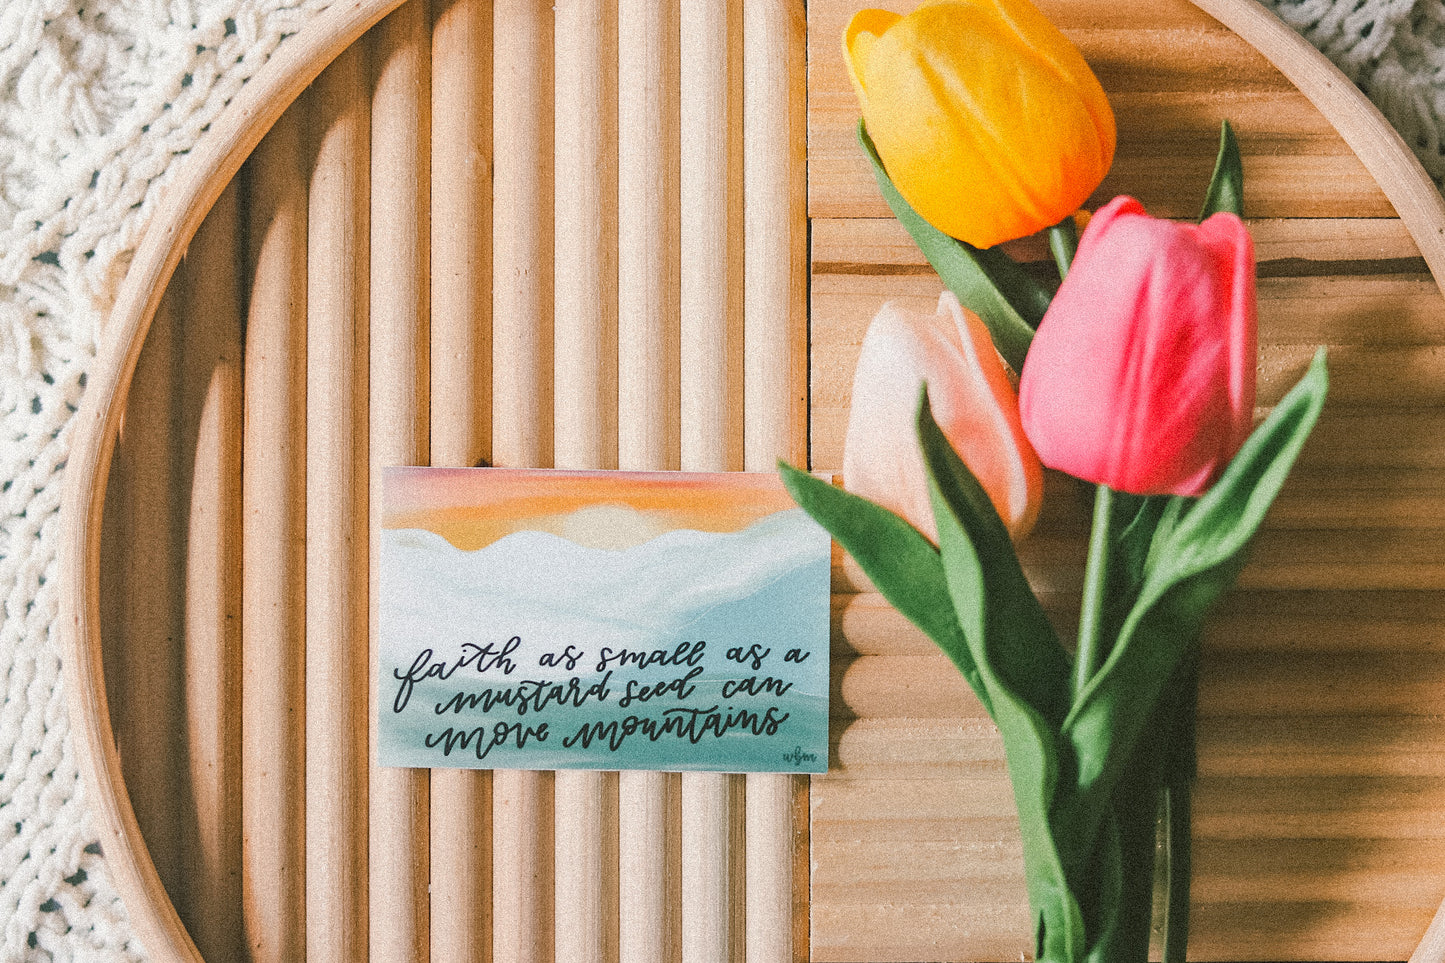 faith as small as a
mustard seed can
move mountains
wbm